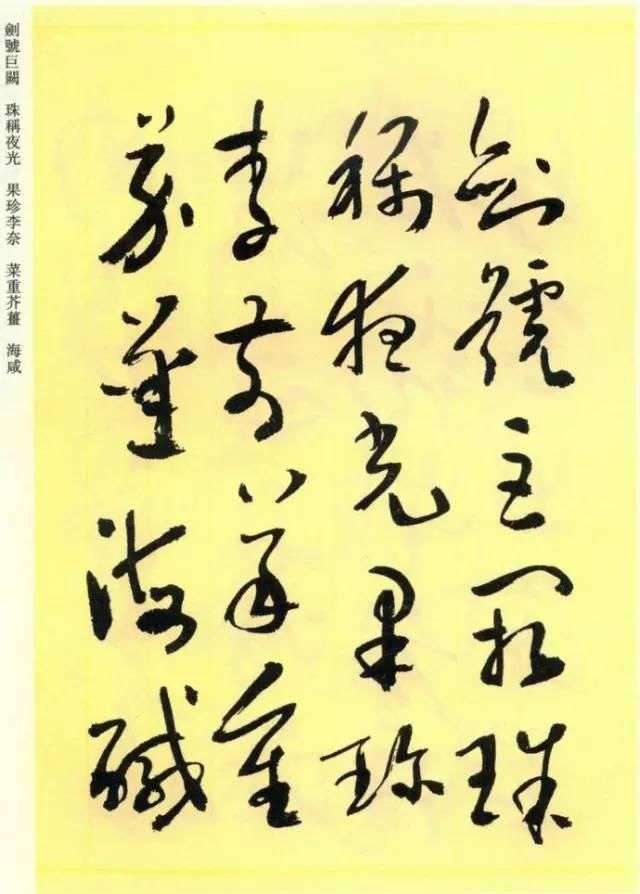 劍號巨闕珠
稱夜光果珍
李奈菜重
芥薑海醎
劍號巨闕　珠稱夜光　果珍李奈　菜重芥薑　海咸